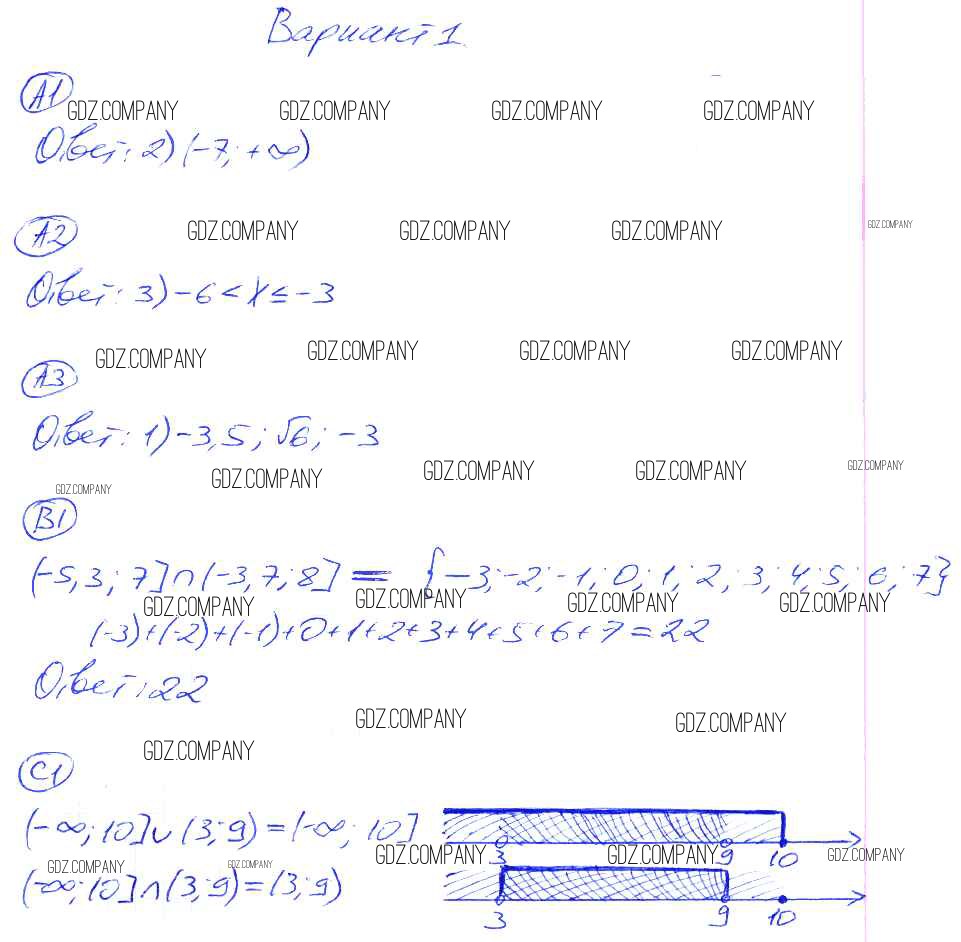 Вариант 1.
A1
GDZ.COMPANY GDZ.COMPANY GDZ.COMPANY GDZ.COMPANY
Ответ: 2) (-7; +∞)
A2
GDZ.COMPANY GDZ.COMPANY GDZ.COMPANY GDZ.COMPANY
Ответ: 3) -6 < x ≤ -3
GDZ.COMPANY GDZ.COMPANY GDZ.COMPANY GDZ.COMPANY
A3
Ответ: 1) -3,5; √6; -3
GDZ.COMPANY GDZ.COMPANY GDZ.COMPANY GDZ.COMPANY GDZ.COMPANY
B1
(-5,3; 7] ∩ (-3,7; 8] = {-3; -2; -1; 0; 1; 2; 3; 4; 5; 6; 7}
GDZ.COMPANY GDZ.COMPANY GDZ.COMPANY GDZ.COMPANY
(-3)+(-2)+(-1)+0+1+2+3+4+5+6+7=22
Ответ: 22
GDZ.COMPANY GDZ.COMPANY GDZ.COMPANY
C1
(-∞; 10] ∪ (3; 9) = (-∞; 10]
3 9 10
GDZ.COMPANY GDZ.COMPANY GDZ.COMPANY GDZ.COMPANY GDZ.COMPANY
(-∞; 10] ∩ (3; 9) = (3; 9)
3 9 10